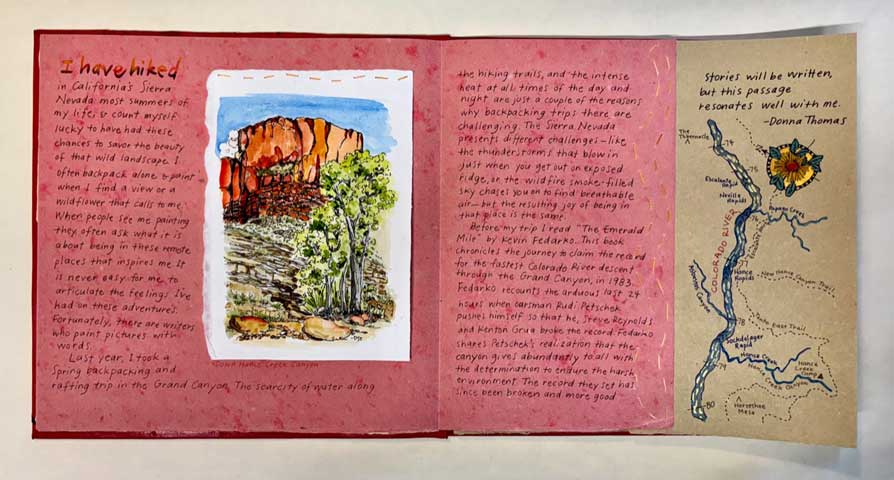 I have hiked
in California's Sierra
Nevada most summers of
my life. I count myself
lucky to have had these
chances to savor the beauty
of that wild landscape. I
often backpack alone & paint
when I find a view or a
wildflower that calls to me.
When people see me painting
they often ask what it is
about being in these remote
places that inspires me. It
is never easy for me to
articulate the feelings I've
had on these adventures.
Fortunately, there are writers
who paint pictures with
words.
Last year, I took a
Spring backpacking and
rafting trip in the Grand Canyon. The scarcity of water along
Down Hance Creek Canyon
the hiking trails, and the intense
heat at all times of the day and
night are just a couple of the reasons
why backpacking trips there are
challenging. The Sierra Nevada
presents different challenges—like
the thunderstorms that blow in
just when you get out on exposed
ridge, or the wildfire smoke-filled
sky chases you on to find breathable
air—but the resulting joy of being in
that place is the same.
Before my trip I read "The Emerald
Mile" by Kevin Fedarko. This book
chronicles the journey to claim the record
for the fastest Colorado River descent
through the Grand Canyon, in 1983.
Fedarko recounts the arduous last 24
hours when oarsman Rudi Petschek
pushes himself so that he, Steve Reynolds
and Kenton Grua broke the record. Fedarko
shares Petschek's realization that the
canyon gives abundantly to all with
the determination to endure the harsh
environment. The record they set has
since been broken and more good
Stories will be written,
but this passage
resonates well with me.
-Donna Thomas
The Tabernacle
74
75
Escalante Rapid
Neville Rapids
Papago Creek
COLORADO RIVER
Hance Rapids
New Hance Canyon Trail
78
East Trail
Sockdolager Rapid
79
Hance Creek
Hance Creek Camp
Hance Creek Canyon
80
Horseshoe Mesa